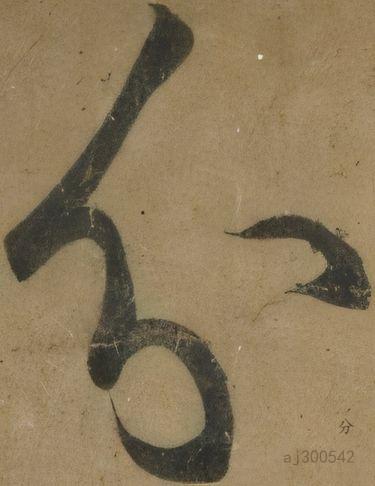 分
分
aj300542